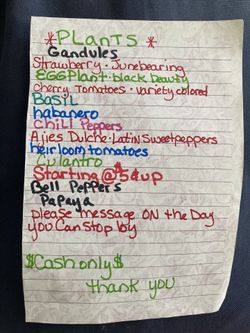 *PLANTS*
Gandules
Strawberry · Junebearing
EGGPlant · black beauty
Cherry Tomatoes · variety colored
Basil
habanero
Chili Peppers
Ajies Dulche · Latin Sweet peppers
heirloom tomatoes
Culantro
Starting @ $5 & up
Bell Peppers
Papaya
please message ON the Day
you Can Stop by
$Cash only$
thank you